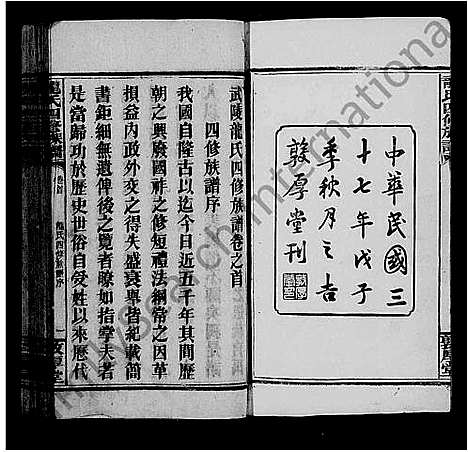 中華民國三
十七年戊子
季秋月之吉
敦厚堂刊
武陵龍氏四修族譜卷之首
四修族譜序
我國自隆古以迄今日近五千年其間歷
朝之興廢國祚之修短禮法綱常之因革
損益內政外交之得失盛衰粵稽紀載簡
書鉅細無遺俾後之覽者瞭如指掌夫著
是當歸功於歷史世俗自受姓以來歷代
龍氏四修族譜
卷首
龍氏四修族譜序
一
敦厚堂
龍氏四修族譜
敦厚堂
familysearch international